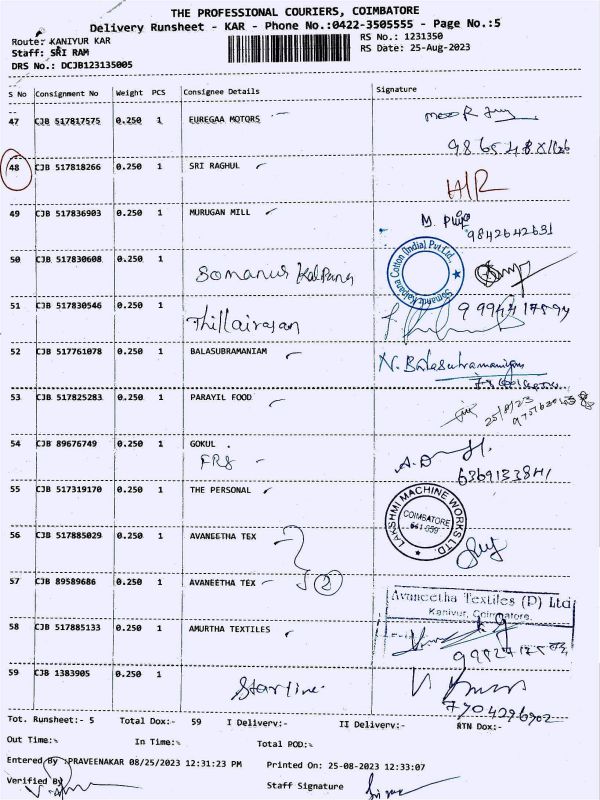 THE PROFESSIONAL COURIERS, COIMBATORE
Delivery Runsheet - KAR - Phone No.:0422-3505555 - Page No.:5
Route: KANIYUR KAR
RS No.: 1231350
Staff: SRI RAM
RS Date: 25-Aug-2023
DRS No.: DCJB123135005
S No Consignment No Weight PCS Consignee Details Signature
47 CJB 517817575 0.250 1 EUREGAA MOTORS
48 CJB 517818266 0.250 1 SRI RAGHUL
H/R
49 CJB 517836903 0.250 1 MURUGAN MILL
9842642631
50 CJB 517830608 0.250 1 Somanur Kalpana
Somanur Kalpana Cotton (India) Pvt Ltd.,
51 CJB 517830546 0.250 1 Thillairajan
52 CJB 517761078 0.250 1 BALASUBRAMANIAM
N. Balasubramaniyam
53 CJB 517825283 0.250 1 PARAYIL FOOD
25/8/23
54 CJB 89676749 0.250 1 GOKUL
FRS
55 CJB 517319170 0.250 1 THE PERSONAL
LAKSHMI MACHINE WORKS LTD
COIMBATORE
641 659
56 CJB 517885029 0.250 1 AVANEETHA TEX
57 CJB 89589686 0.250 1 AVANEETHA TEX 2
Avaneetha Textiles (P) Ltd
Kaniyur, Coimbatore.
58 CJB 517885133 0.250 1 AMURTHA TEXTILES
59 CJB 1383905 0.250 1 Starline
7904296902
Tot. Runsheet:- 5 Total Dox:- 59 I Delivery:- II Delivery:- RTN Dox:-
Out Time:- In Time:- Total POD:-
Entered By :PRAVEENAKAR 08/25/2023 12:31:23 PM Printed On: 25-08-2023 12:33:07
Verified By Staff Signature